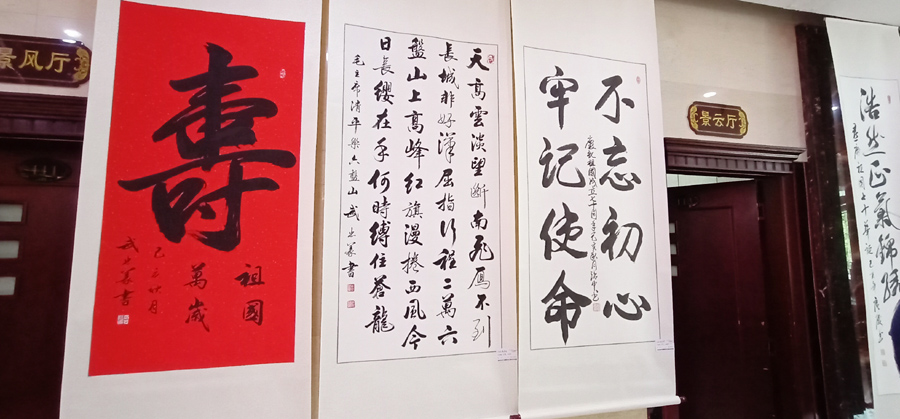 景风厅
壽
祖國
萬歲
天高雲淡望斷南飛鴈不到
長城非好漢屈指行程二萬六
盤山上高峰紅旗漫捲西風今
日長纓在手何時縛住蒼龍
毛主席清平樂六盤山 武之書
不忘初心
牢记使命
慶祝祖國成立七十周年
景云厅
浩然正氣錦綉